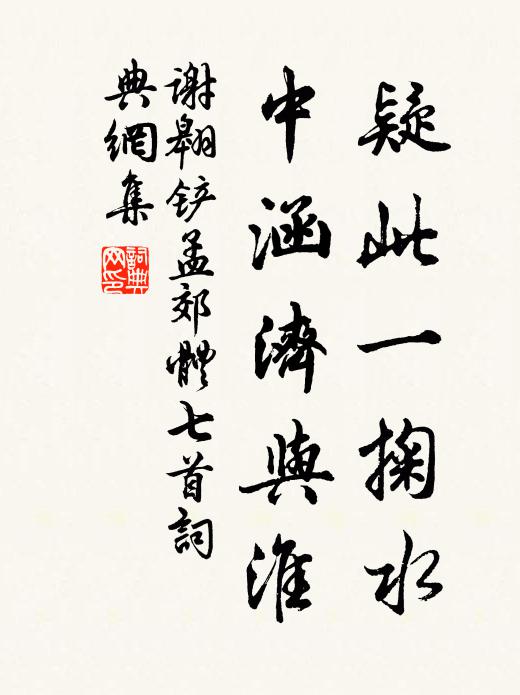 疑此一掬水
中涵濟與淮
謝翱铲孟郊體七首詞
典網集
詞典
网印